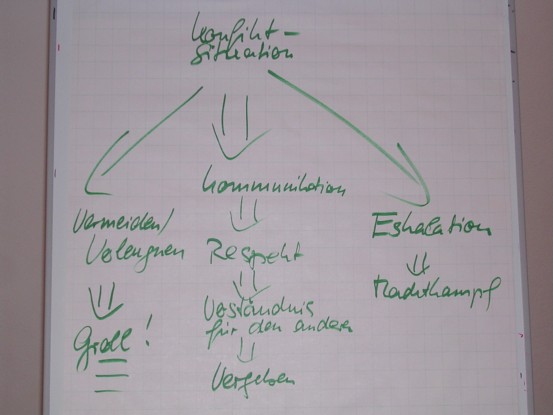 Konflikt-
Situation
Vermeiden/
Verleugnen
Groll!
Kommunikation
Respekt
Verständnis
für den anderen
Vergeben
Eskalation
Machtkampf